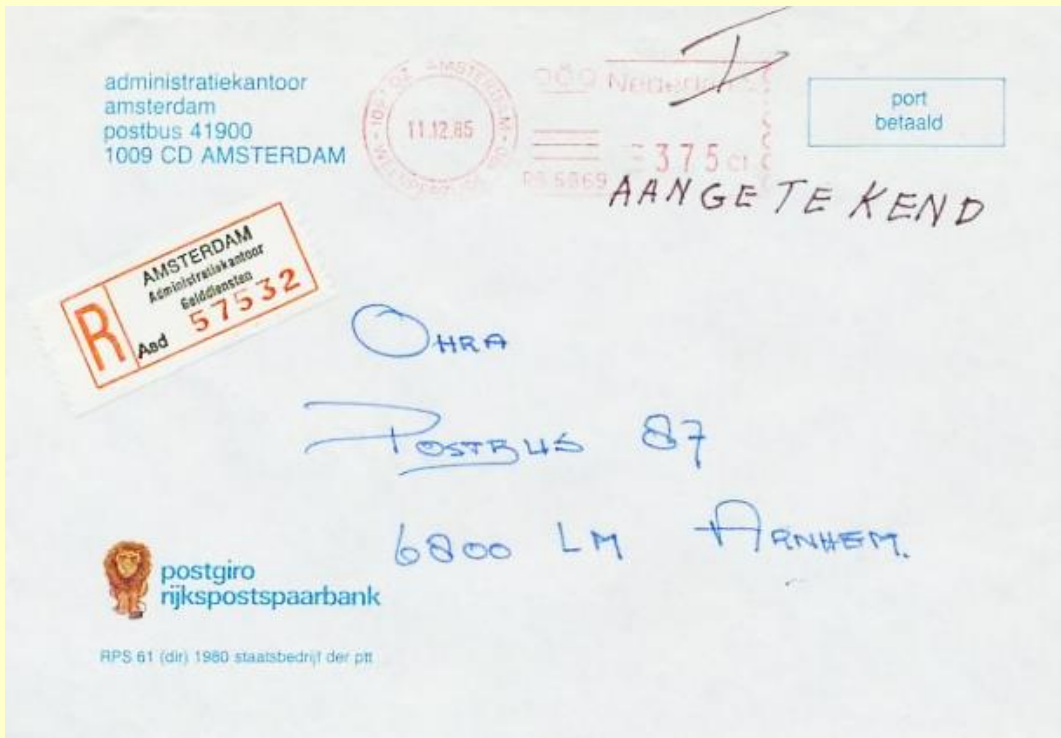 administratiekantoor
amsterdam
postbus 41900
1009 CD AMSTERDAM
AMSTERDAM
11.12.85
Nederland
375 ct
port
betaald
AANGETEKEND
AMSTERDAM
Administratiekantoor
Gelddiensten
R
Asd 57532
OHRA
POSTBUS 87
6800 LM ARNHEM.
postgiro
rijkspostspaarbank
RPS 61 (dir) 1980 staatsbedrijf der ptt